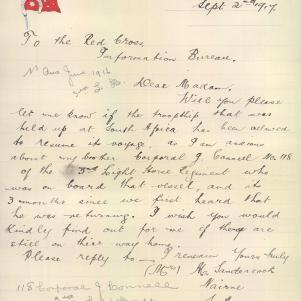 Sept 2nd 1917
To the Red Cross,
Information Bureau.
Dear Madam,
Will you please
let me know if the troopship that was
held up at South Africa has been allowed
to resume its voyage, as I am anxious
about my brother Corporal J Connell No. 118
of the 3rd Light Horse Regiment who
was on board that vessel, and it
3 months since we first heard that
he was returning. I wish you would
kindly find out for me if they are
still on their way home.
Please reply to I remain Yours truly
(Mrs) M. Sandercock
Nairne
118 Corporal J Connell
S. A.